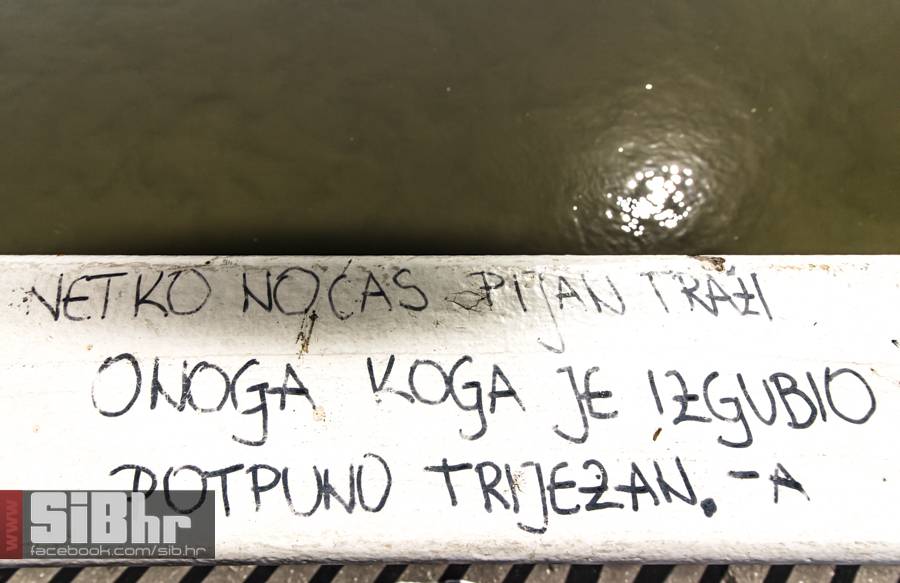 NETKO NOĆAS PIJAN TRAŽI
ONOGA KOGA JE IZGUBIO
POTPUNO TRIJEZAN. -A
www SiBhr
facebook.com/sib.hr